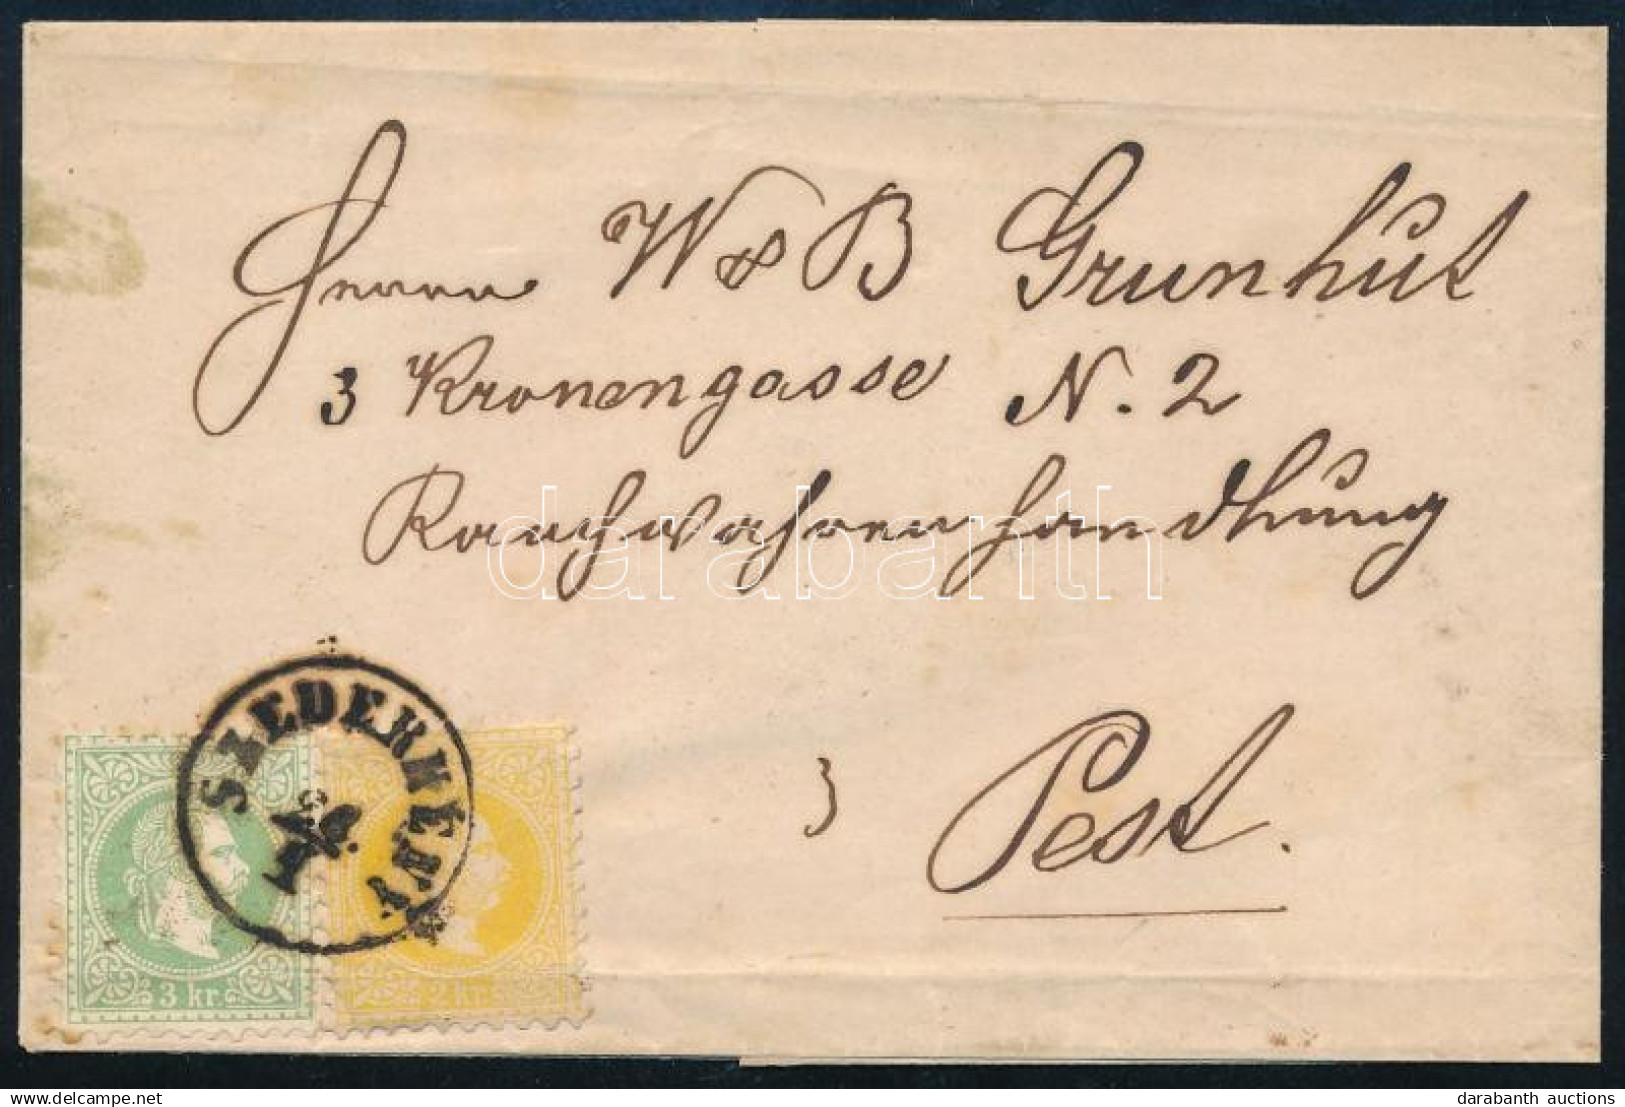 Herrn W & B Grunhut
3 Kronengasse N. 2
Rauchwahrenhandlung
darabanth
3 Pest.
SZEDERKÉNY
3 kr.
2 kr.
delcampe.net
darabanth auctions